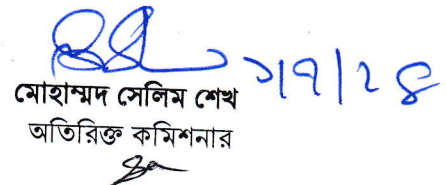 ১/৭/২৪
মোহাম্মদ সেলিম শেখ
অতিরিক্ত কমিশনার